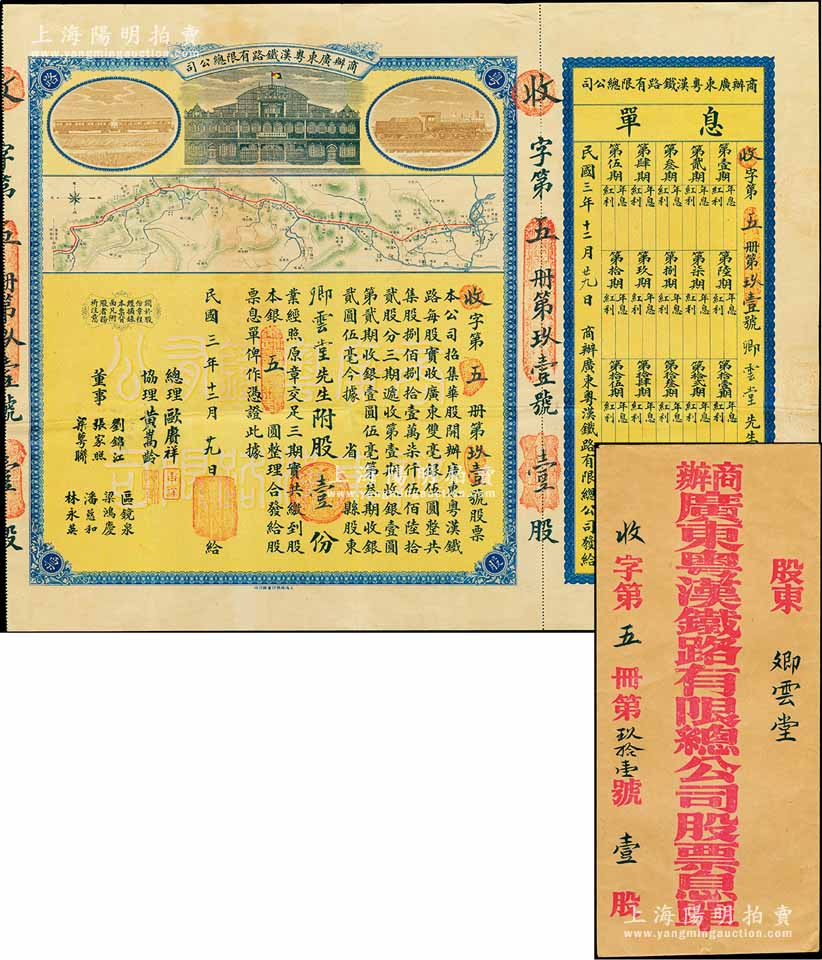 上海陽明拍賣
www.yangmingauction.com
商辦廣東粵漢鐵路有限總公司
收字第五冊第玖壹號股票
本公司招集華股開辦廣東粵漢鐵
路每股實收廣東雙毫銀伍圓整共
集股捌佰捌拾壹萬柒仟伍佰陸拾
貳股分三期遞收第壹期收銀壹圓
第貳期收銀壹圓伍毫第叁期收銀
貳圓伍毫今據 省 縣股東
卿雲堂先生附股壹份
業經照原章交足三期實共繳到股
本銀 五 圓整理合發給股
票息單俾作憑證此據
民國三年十二月廿九日給
總理 歐賡祥
協理 黃嵩齡
董事
劉錦江
張家照
梁粵聯
區鏡泉
梁鴻慶
潘慈和
林永英
收字第五冊第玖壹號 壹股
商辦廣東粵漢鐵路有限總公司
息單
收字第五冊第玖壹號卿雲堂先生
第壹期 年息 紅利
第貳期 年息 紅利
第叁期 年息 紅利
第肆期 年息 紅利
第伍期 年息 紅利
第陸期 年息 紅利
第柒期 年息 紅利
第捌期 年息 紅利
第玖期 年息 紅利
第拾期 年息 紅利
第拾壹期 年息 紅利
第拾貳期 年息 紅利
第拾叁期 年息 紅利
第拾肆期 年息 紅利
第拾伍期 年息 紅利
民國三年十二月廿九日 商辦廣東粵漢鐵路有限總公司發給
股東 卿雲堂
商辦廣東粵漢鐵路有限總公司股票息單
收字第五冊第玖拾壹號壹股
上海陽明拍賣
www.yangmingauction.com
上海陽明拍賣
www.yangmingauction.com